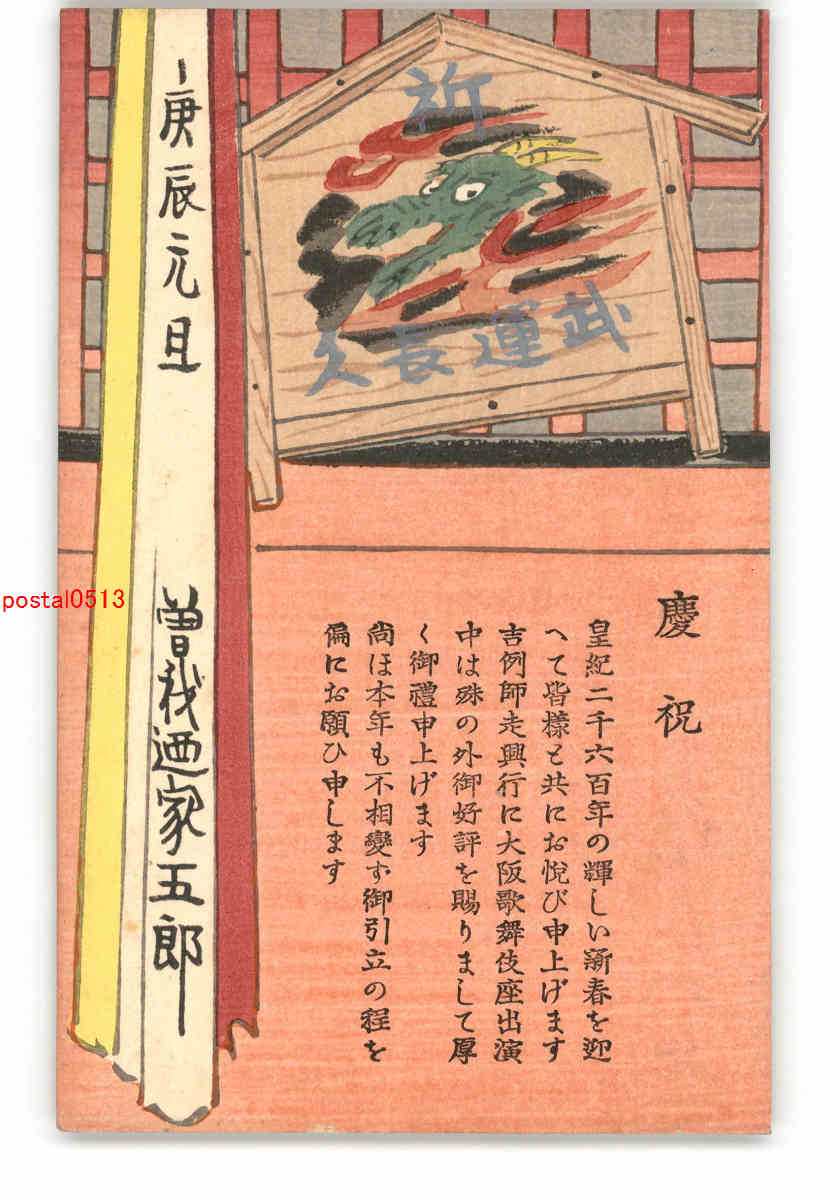 祈
武運長久
慶祝
皇紀二千六百年の輝しい新春を迎
へて皆樣と共にお悅び申上げます
吉例師走興行に大阪歌舞伎座出演
中は殊の外御好評を賜りまして厚
く御禮申上げます
尚ほ本年も不相變お御引立の程を
偏にお願ひ申します
庚辰元旦
曽我廼家五郎
postal0513